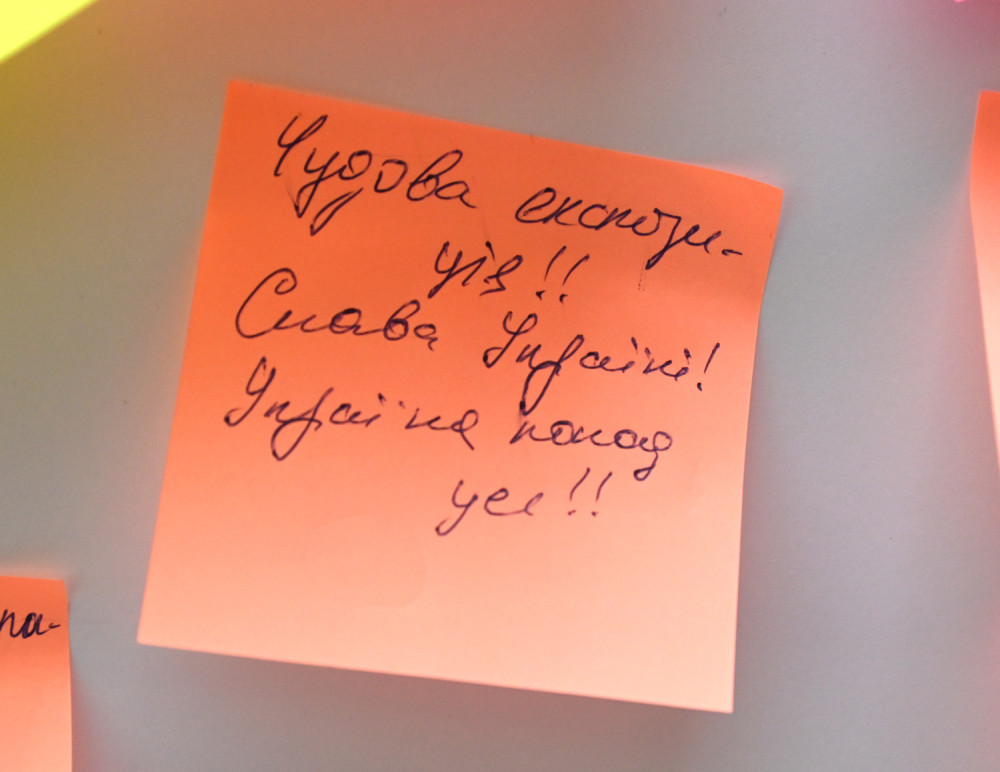 Чудова експози-
ція!!
Слава Україні!
Україна понад
усе!!
па-